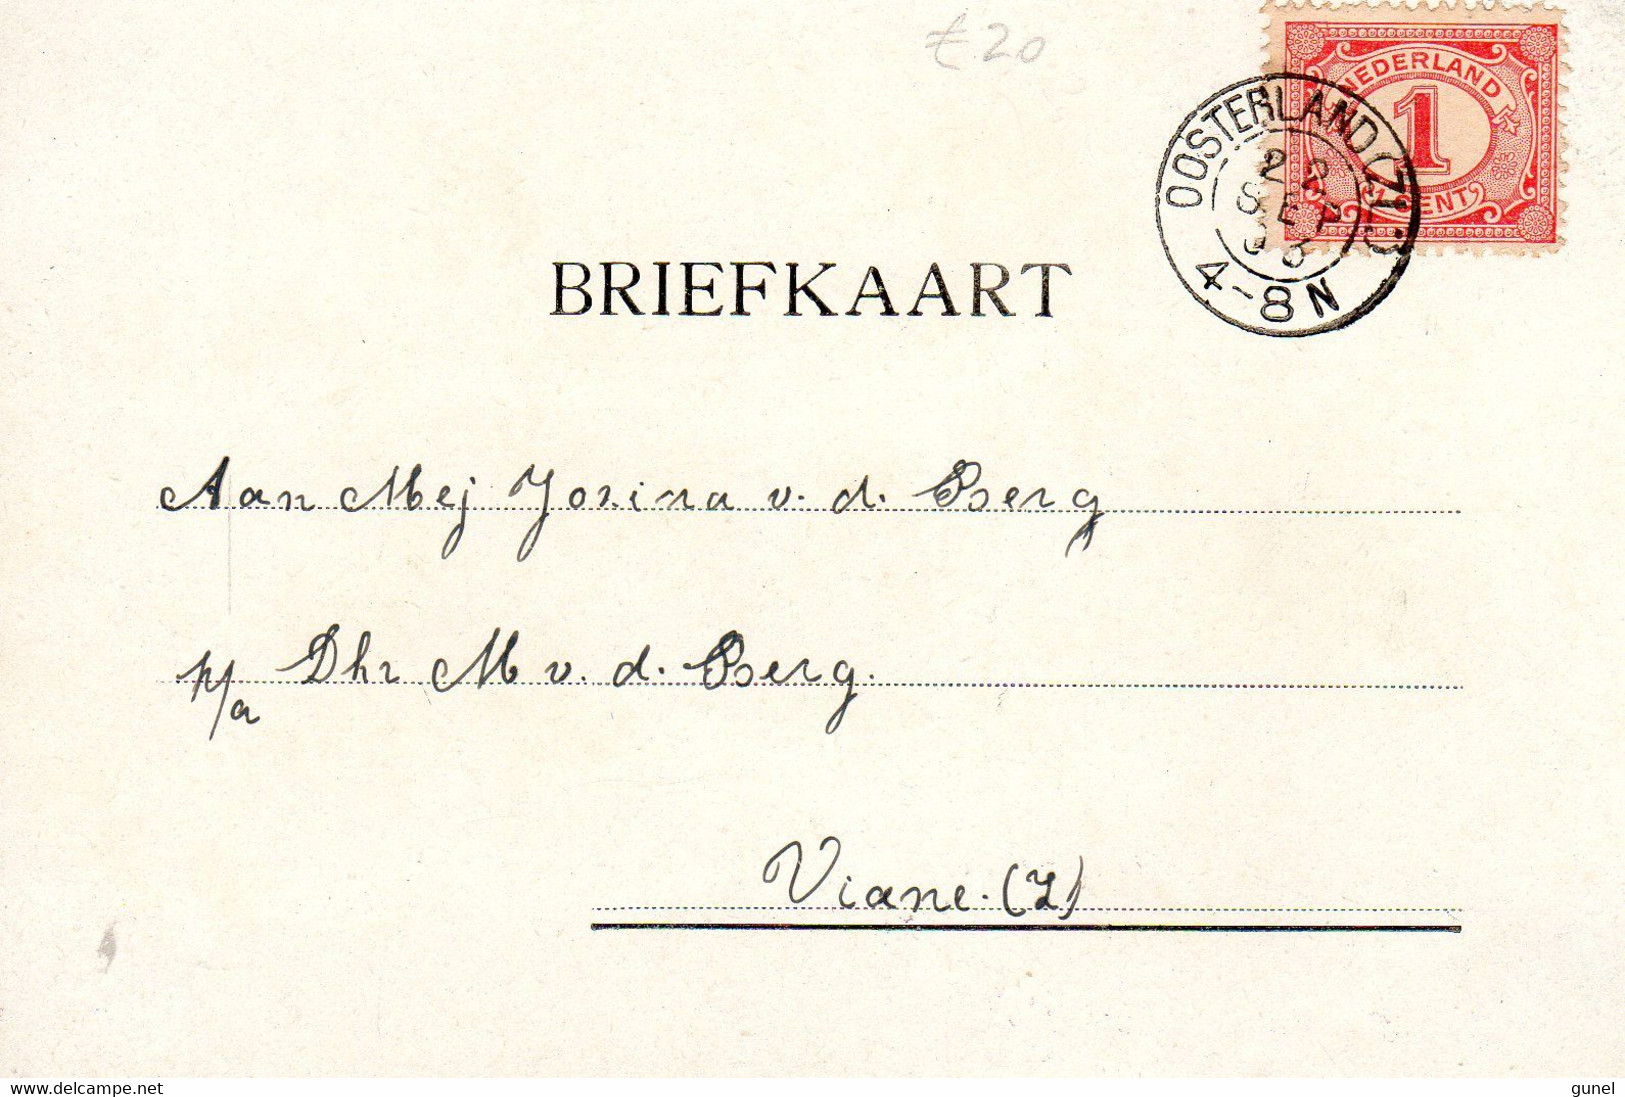 € 20
NEDERLAND
1
1 CENT
OOSTERLAND (ZL)
22
SEP
4-8 N
BRIEFKAART
Aan Mej Jozina v. d. Berg
p/a Dhr M v. d. Berg.
Viane. (Z)
www.delcampe.net
gunel